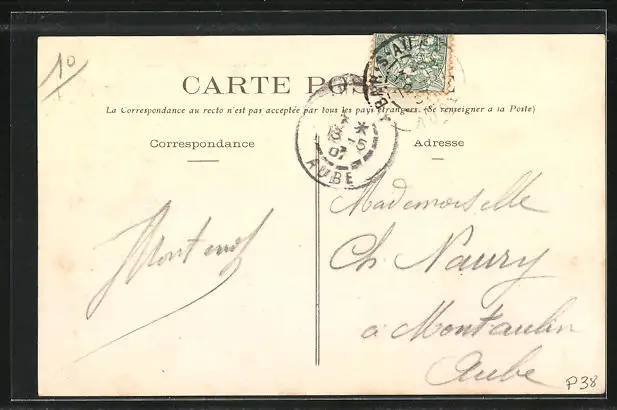 10
CARTE POSTALE
La Correspondance au recto n'est pas acceptée par tous les pays étrangers. (Se renseigner à la Poste)
Correspondance
Adresse
BAR-S-AU
13 -5
07
AUBE
Mademoiselle
Ch. Naury
à Montaulin
Aube
P38